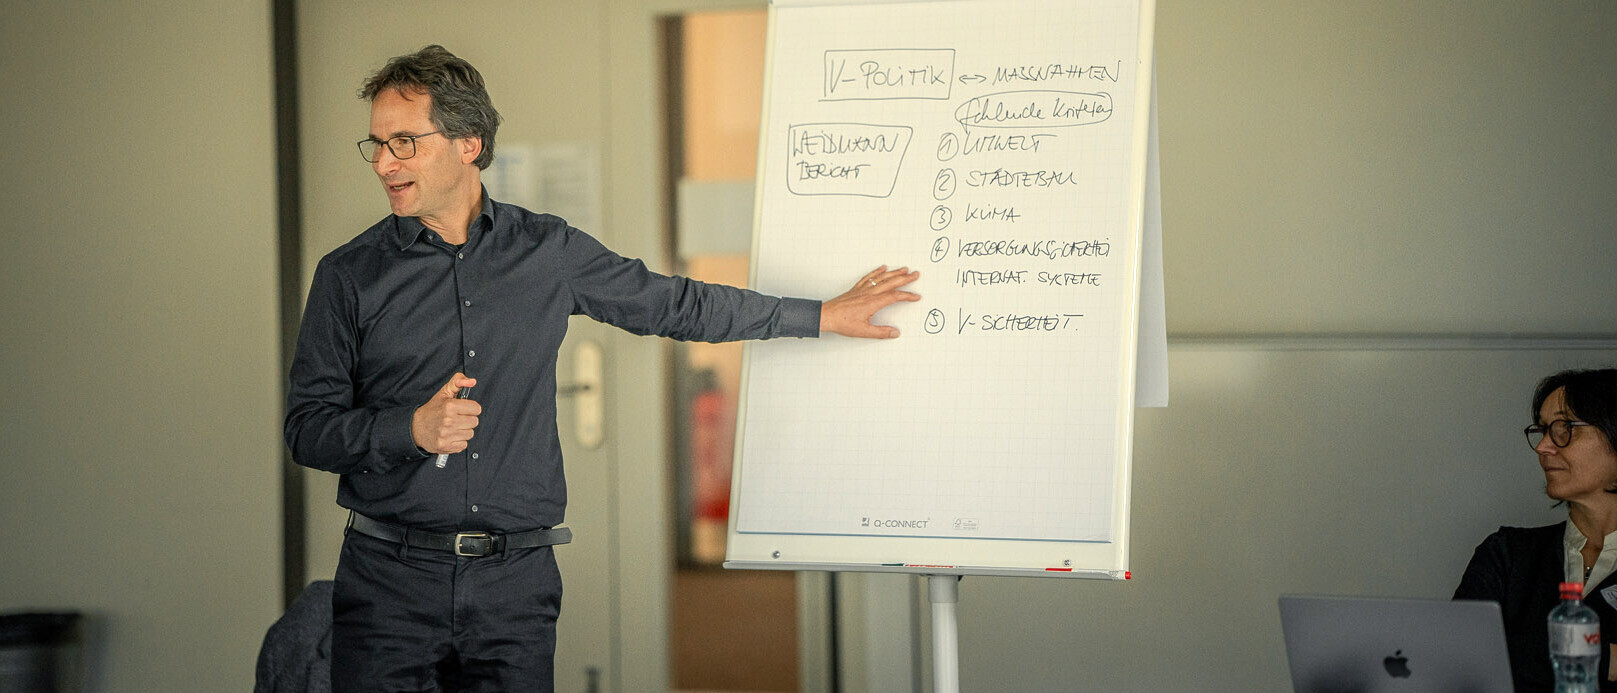 V-POLITIK ↔ MASSNAHMEN
fehlende Kriterien
WEIDMANN
BERICHT
① UMWELT
② STÄDTEBAU
③ KLIMA
④ VERSORGUNGSSICHERHEI
INTERNAT. SYSTEME
⑤ V-SICHERHEIT.
Q-CONNECT